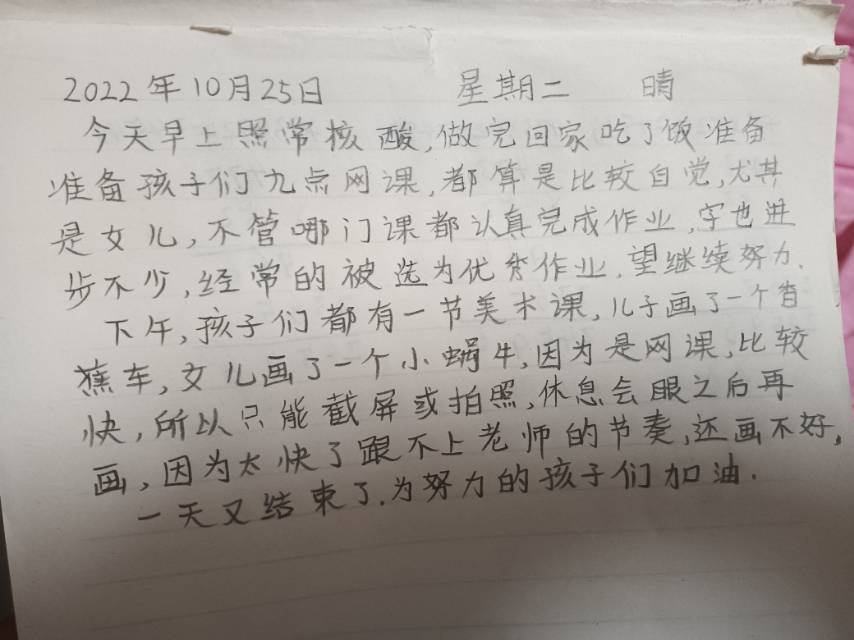 2022年10月25日 星期二 晴
今天早上照常核酸,做完回家吃了饭准备
准备孩子们九点网课,都算是比较自觉,尤其
是女儿,不管哪门课都认真完成作业,字也进
步不少,经常的被选为优秀作业,望继续努力.
下午,孩子们都有一节美术课,儿子画了一个香
蕉车,女儿画了一个小蜗牛,因为是网课,比较
快,所以只能截屏或拍照,休息会眼之后再
画,因为太快了跟不上老师的节奏,还画不好,
一天又结束了.为努力的孩子们加油.